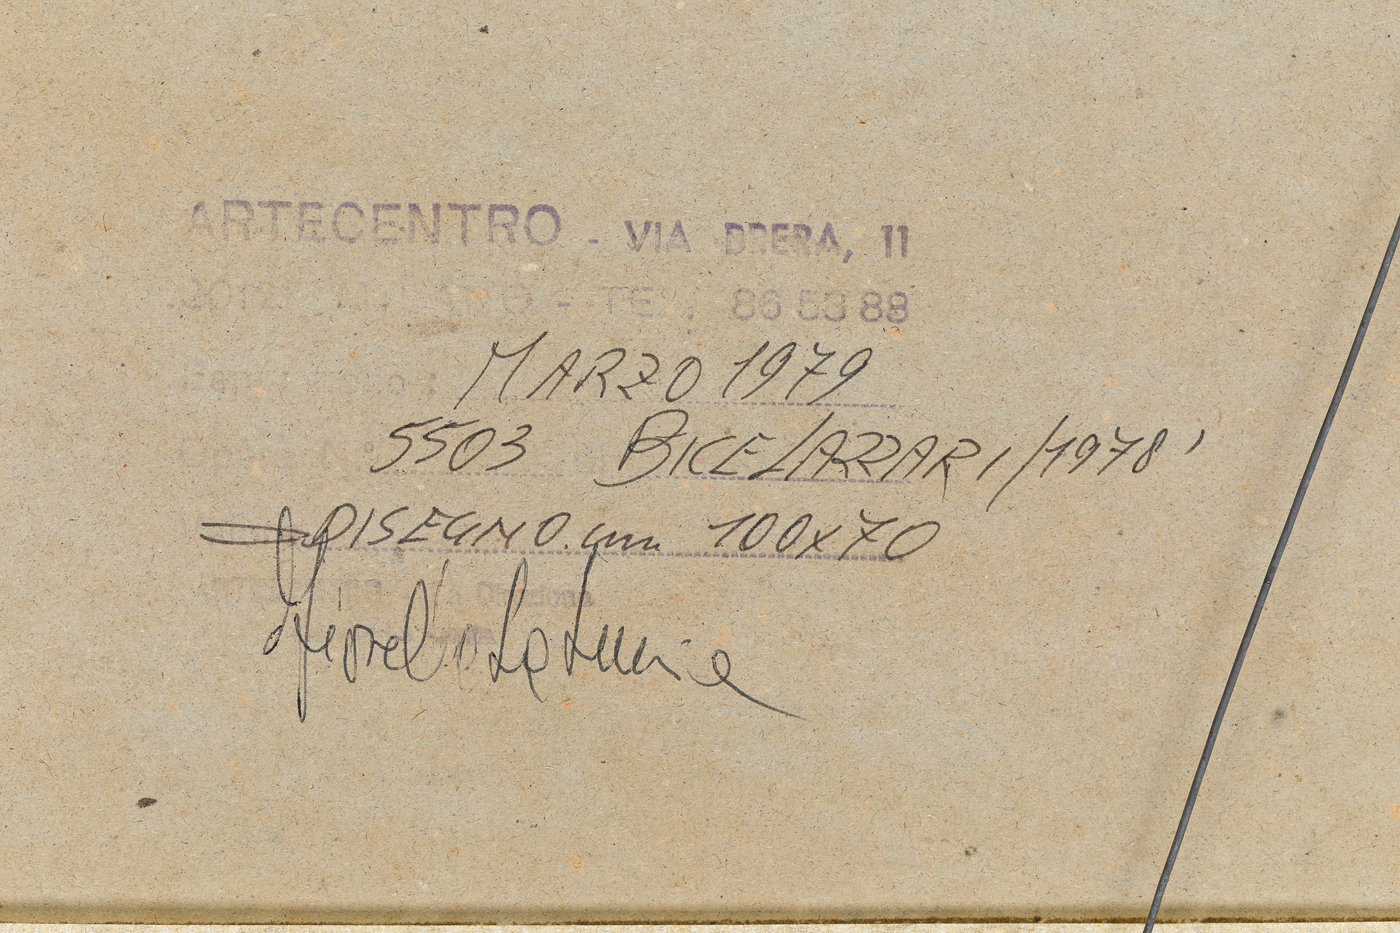 ARTECENTRO - VIA BRERA, 11
MILANO - TEL. 86 53 88
MARZO 1979
5503 BICE LAZZARI /1978'
DISEGNO. cm 100x70
Fiorella La Lumia